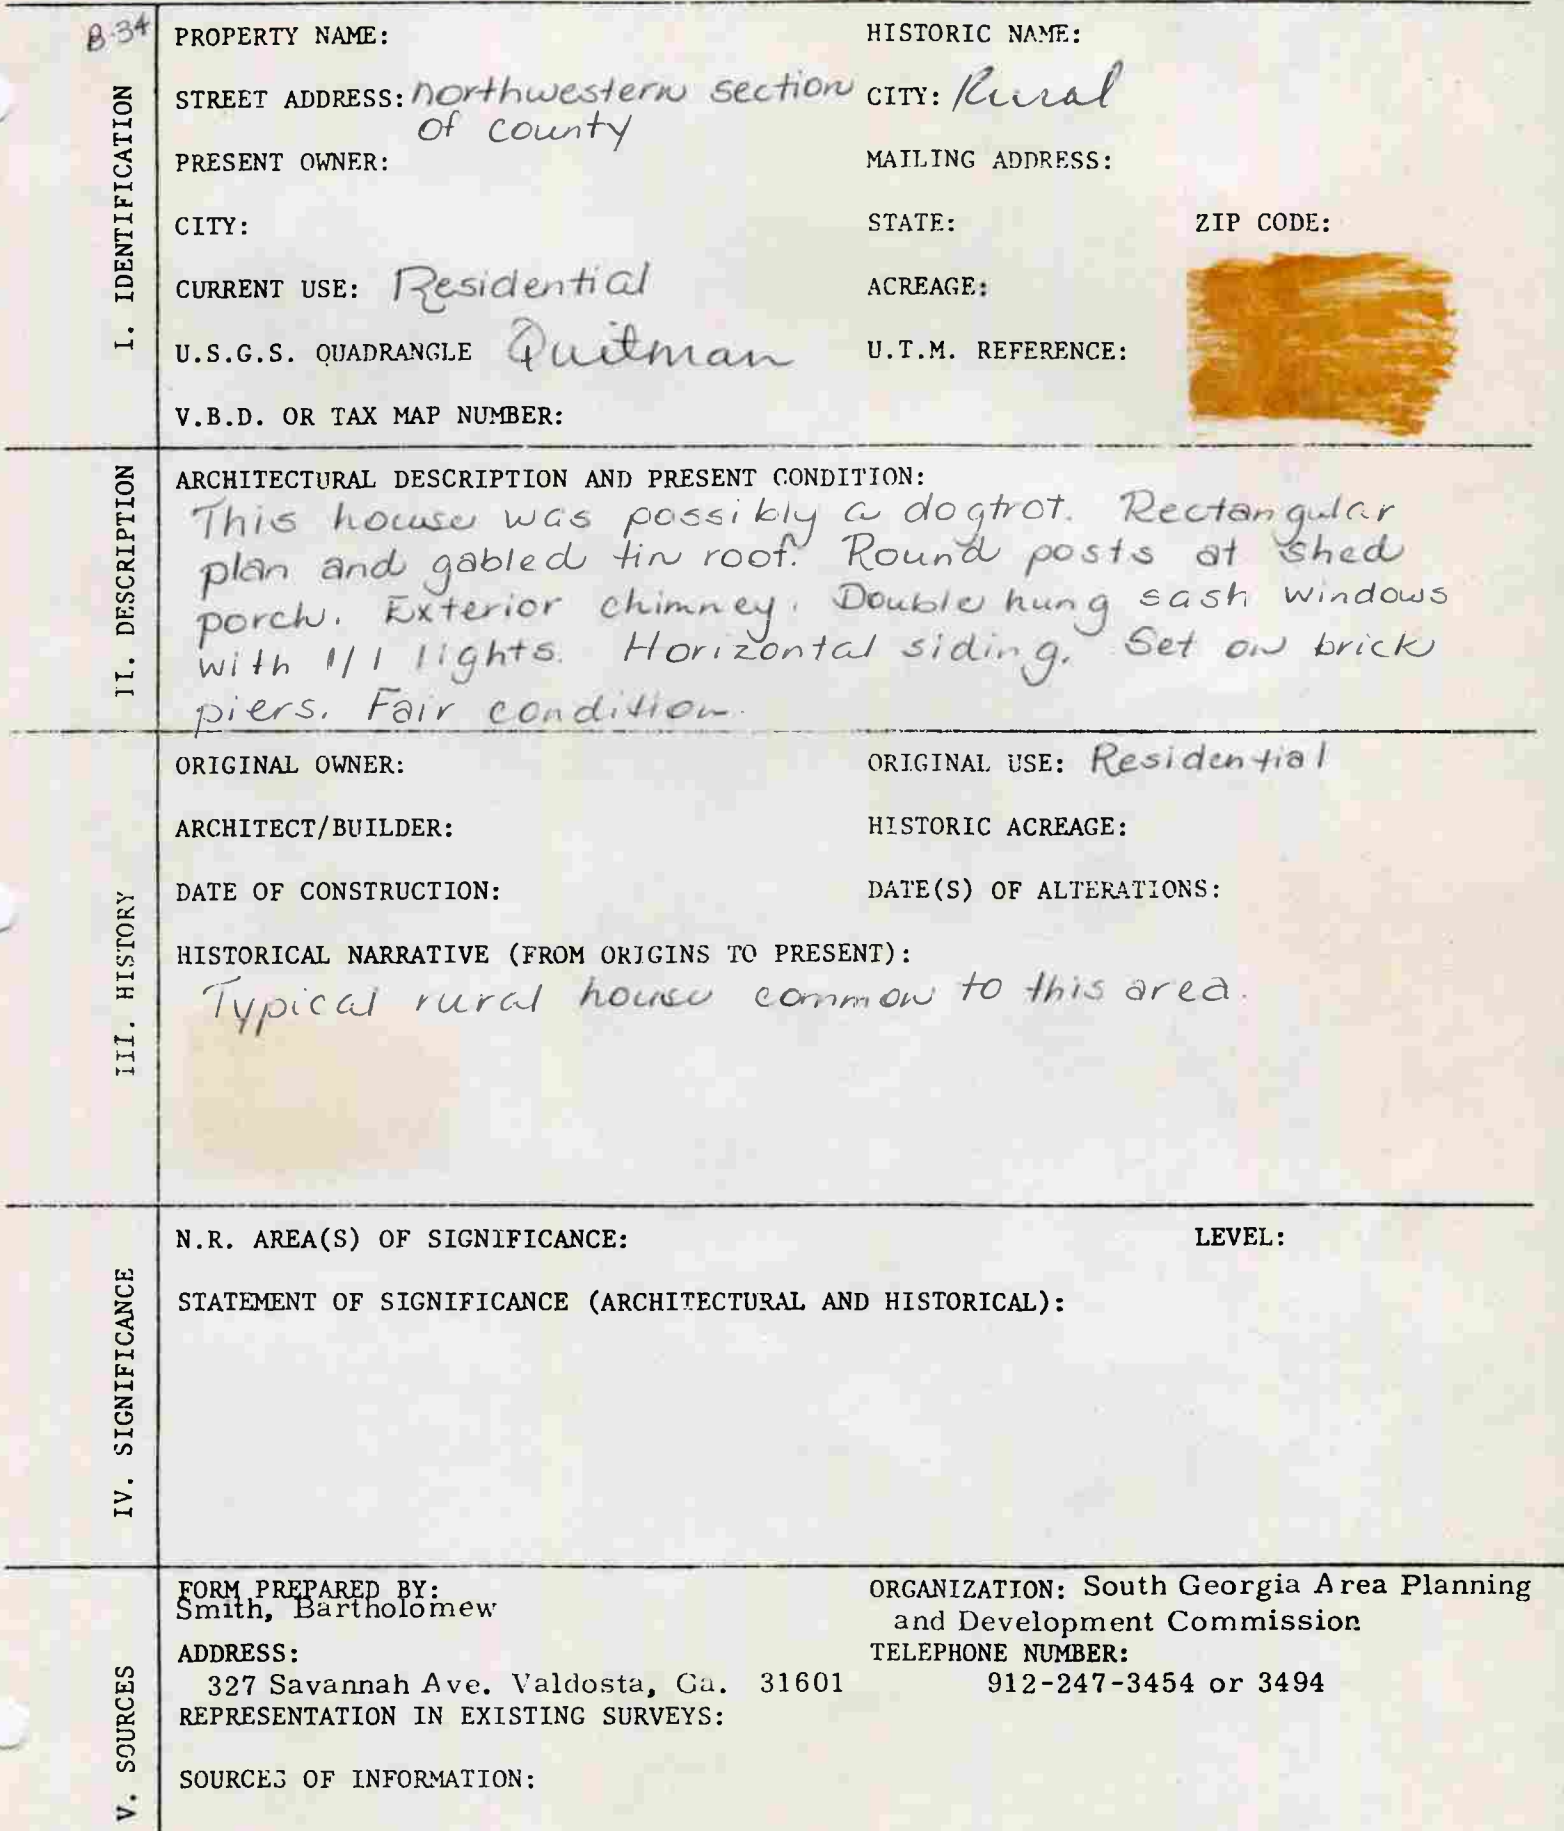 B-34
PROPERTY NAME: HISTORIC NAME:
STREET ADDRESS: northwestern section CITY: Rural
of county
PRESENT OWNER: MAILING ADDRESS:
CITY: STATE: ZIP CODE:
CURRENT USE: Residential ACREAGE:
U.S.G.S. QUADRANGLE Quitman U.T.M. REFERENCE:
V.B.D. OR TAX MAP NUMBER:
I. IDENTIFICATION
ARCHITECTURAL DESCRIPTION AND PRESENT CONDITION:
This house was possibly a dogtrot. Rectangular
plan and gabled tin roof. Round posts at shed
porch. Exterior chimney. Double hung sash windows
with 1/1 lights. Horizontal siding. Set on brick
piers. Fair condition.
II. DESCRIPTION
ORIGINAL OWNER: ORIGINAL USE: Residential
ARCHITECT/BUILDER: HISTORIC ACREAGE:
DATE OF CONSTRUCTION: DATE(S) OF ALTERATIONS:
HISTORICAL NARRATIVE (FROM ORIGINS TO PRESENT):
Typical rural house common to this area.
III. HISTORY
N.R. AREA(S) OF SIGNIFICANCE: LEVEL:
STATEMENT OF SIGNIFICANCE (ARCHITECTURAL AND HISTORICAL):
IV. SIGNIFICANCE
FORM PREPARED BY: ORGANIZATION: South Georgia Area Planning
Smith, Bartholomew and Development Commission
ADDRESS: TELEPHONE NUMBER:
327 Savannah Ave. Valdosta, Ga. 31601 912-247-3454 or 3494
REPRESENTATION IN EXISTING SURVEYS:
SOURCES OF INFORMATION:
V. SOURCES